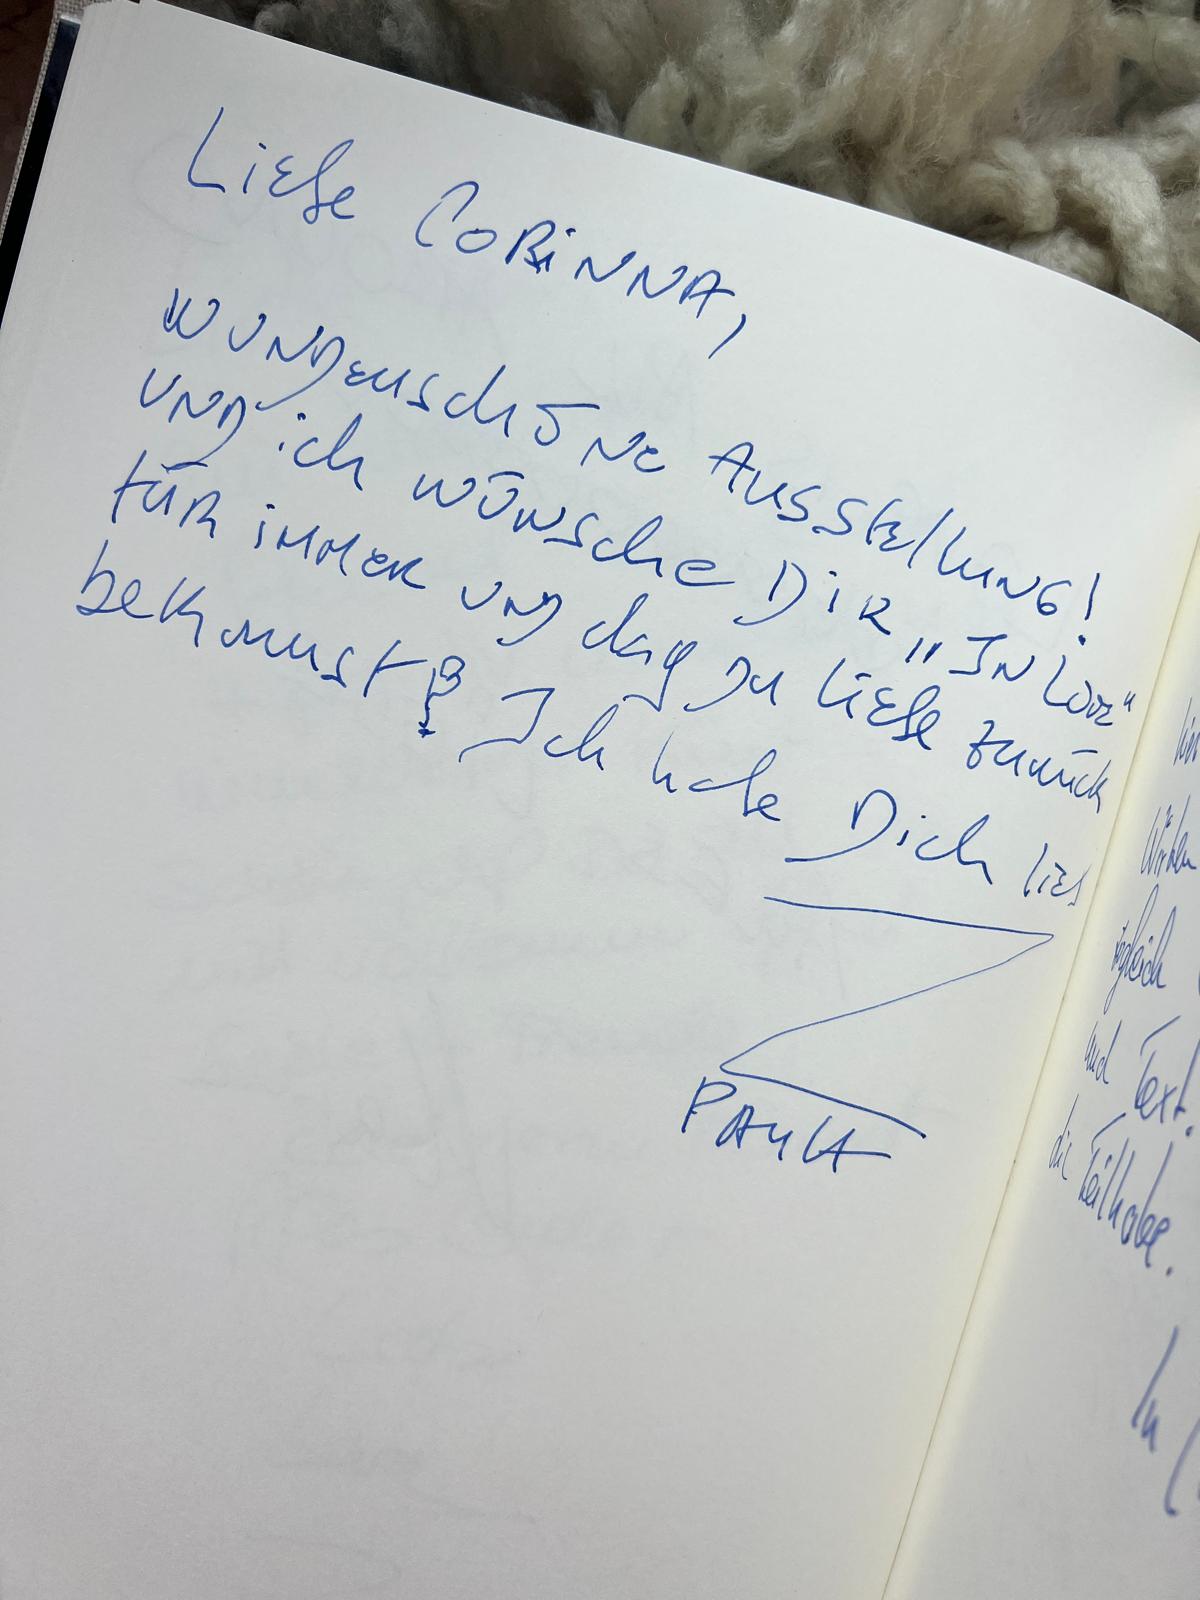 Liebe Corinna,
wunderschöne Ausstellung!
und ich wünsche Dir „In Love“
für immer und daß Du Liebe zurück
bekommst! Ich habe Dich lieb
Paula
und Text.
die Teilhabe.
In